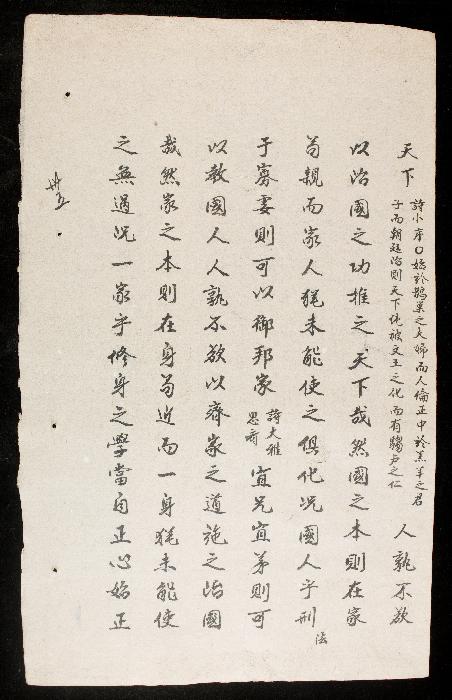 天下 詩小序〇始於鵲巢之夫婦而人倫正中於羔羊之君
子而朝廷治則天下化被文王之化而有騶虞之仁 人孰不欲
以治國之功推之天下哉然國之本則在家
為親而家人猶未能使之俱化况國人乎刑 法
于寡妻則可以御邦家 詩大雅思齊 宜兄宜弟則可
以教國人人孰不欲以齊家之道施之治國
哉然家之本則在身為近而一身猶未能使
之無過况一家乎修身之學當自正心始正
卅五